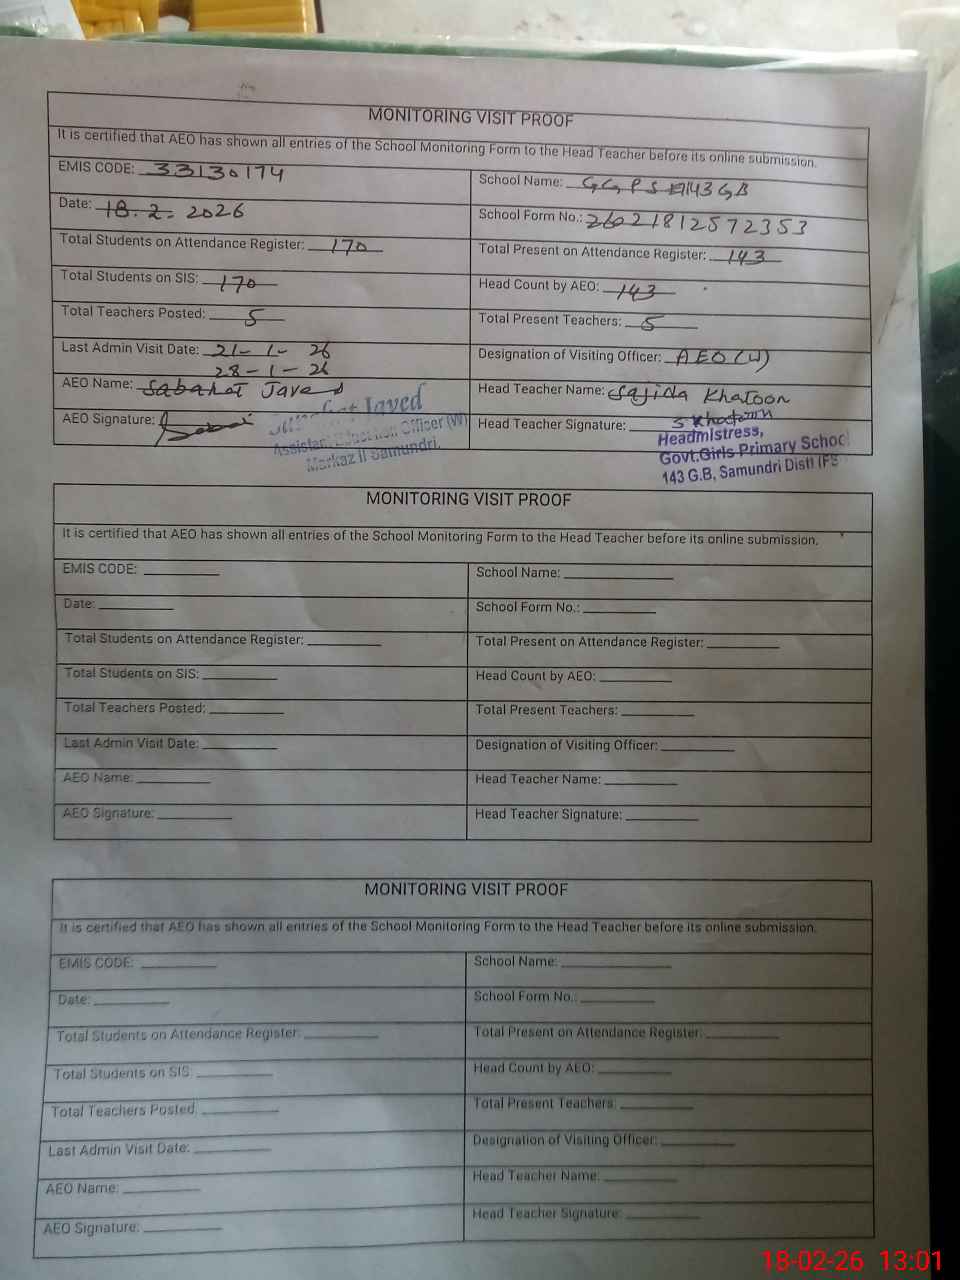 MONITORING VISIT PROOF
It is certified that AEO has shown all entries of the School Monitoring Form to the Head Teacher before its online submission.
EMIS CODE: 33130174
School Name: G,G, P S 143 G,B
Date: 18.2.2026
School Form No.: 26021812572353
Total Students on Attendance Register: 170
Total Present on Attendance Register: 143
Total Students on SIS: 170
Head Count by AEO: 143
Total Teachers Posted: 5
Total Present Teachers: 5
Last Admin Visit Date: 21-1-26
28-1-26
Designation of Visiting Officer: AEO (W)
AEO Name: Sabahat Javed
Head Teacher Name: Sajida Khatoon
AEO Signature:
Javed
Assistant Education Officer (W)
Markaz II Samundri.
Head Teacher Signature: S Khatoon
Headmistress,
Govt.Girls Primary School
143 G.B, Samundri Distt (FS
MONITORING VISIT PROOF
It is certified that AEO has shown all entries of the School Monitoring Form to the Head Teacher before its online submission.
EMIS CODE:
School Name:
Date:
School Form No.:
Total Students on Attendance Register:
Total Present on Attendance Register:
Total Students on SIS:
Head Count by AEO:
Total Teachers Posted:
Total Present Teachers:
Last Admin Visit Date:
Designation of Visiting Officer:
AEO Name:
Head Teacher Name:
AEO Signature:
Head Teacher Signature:
MONITORING VISIT PROOF
It is certified that AEO has shown all entries of the School Monitoring Form to the Head Teacher before its online submission.
EMIS CODE:
School Name:
Date:
School Form No.:
Total Students on Attendance Register:
Total Present on Attendance Register:
Total Students on SIS:
Head Count by AEO:
Total Teachers Posted:
Total Present Teachers:
Last Admin Visit Date:
Designation of Visiting Officer:
AEO Name:
Head Teacher Name:
AEO Signature:
Head Teacher Signature:
18-02-26 13:01